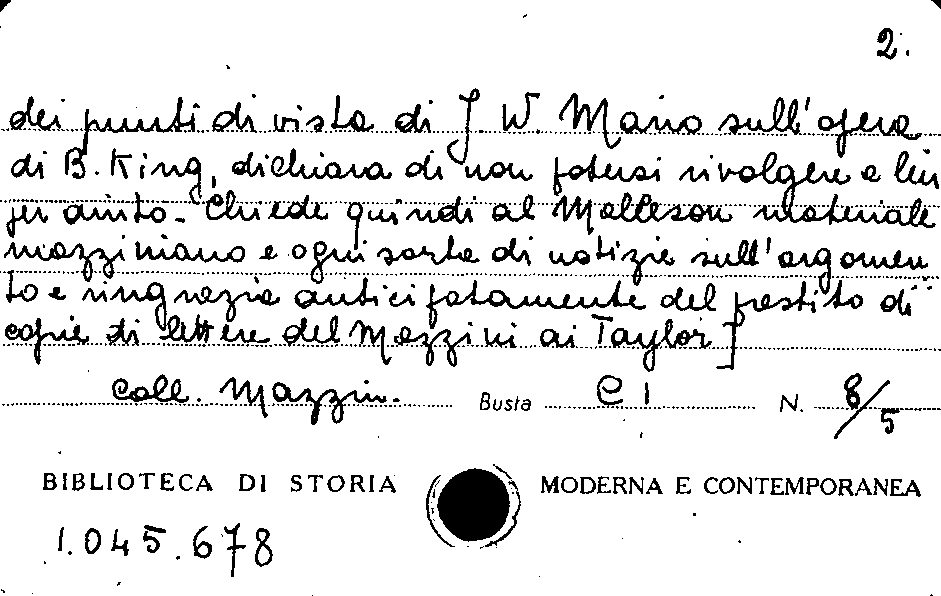 2.
dei punti di vista di J. W. Mario sull'opera
di B. King, dichiara di non potersi rivolgere a lui
per aiuto. Chiede quindi al Malleson materiale
mazziniano e ogni sorta di notizie sull'argomen
to e ringrazia anticipatamente del prestito di
copie di lettere del Mazzini ai Taylor]
Coll. Mazzin. Busta C I N. 8/5
BIBLIOTECA DI STORIA MODERNA E CONTEMPORANEA
1.045.678